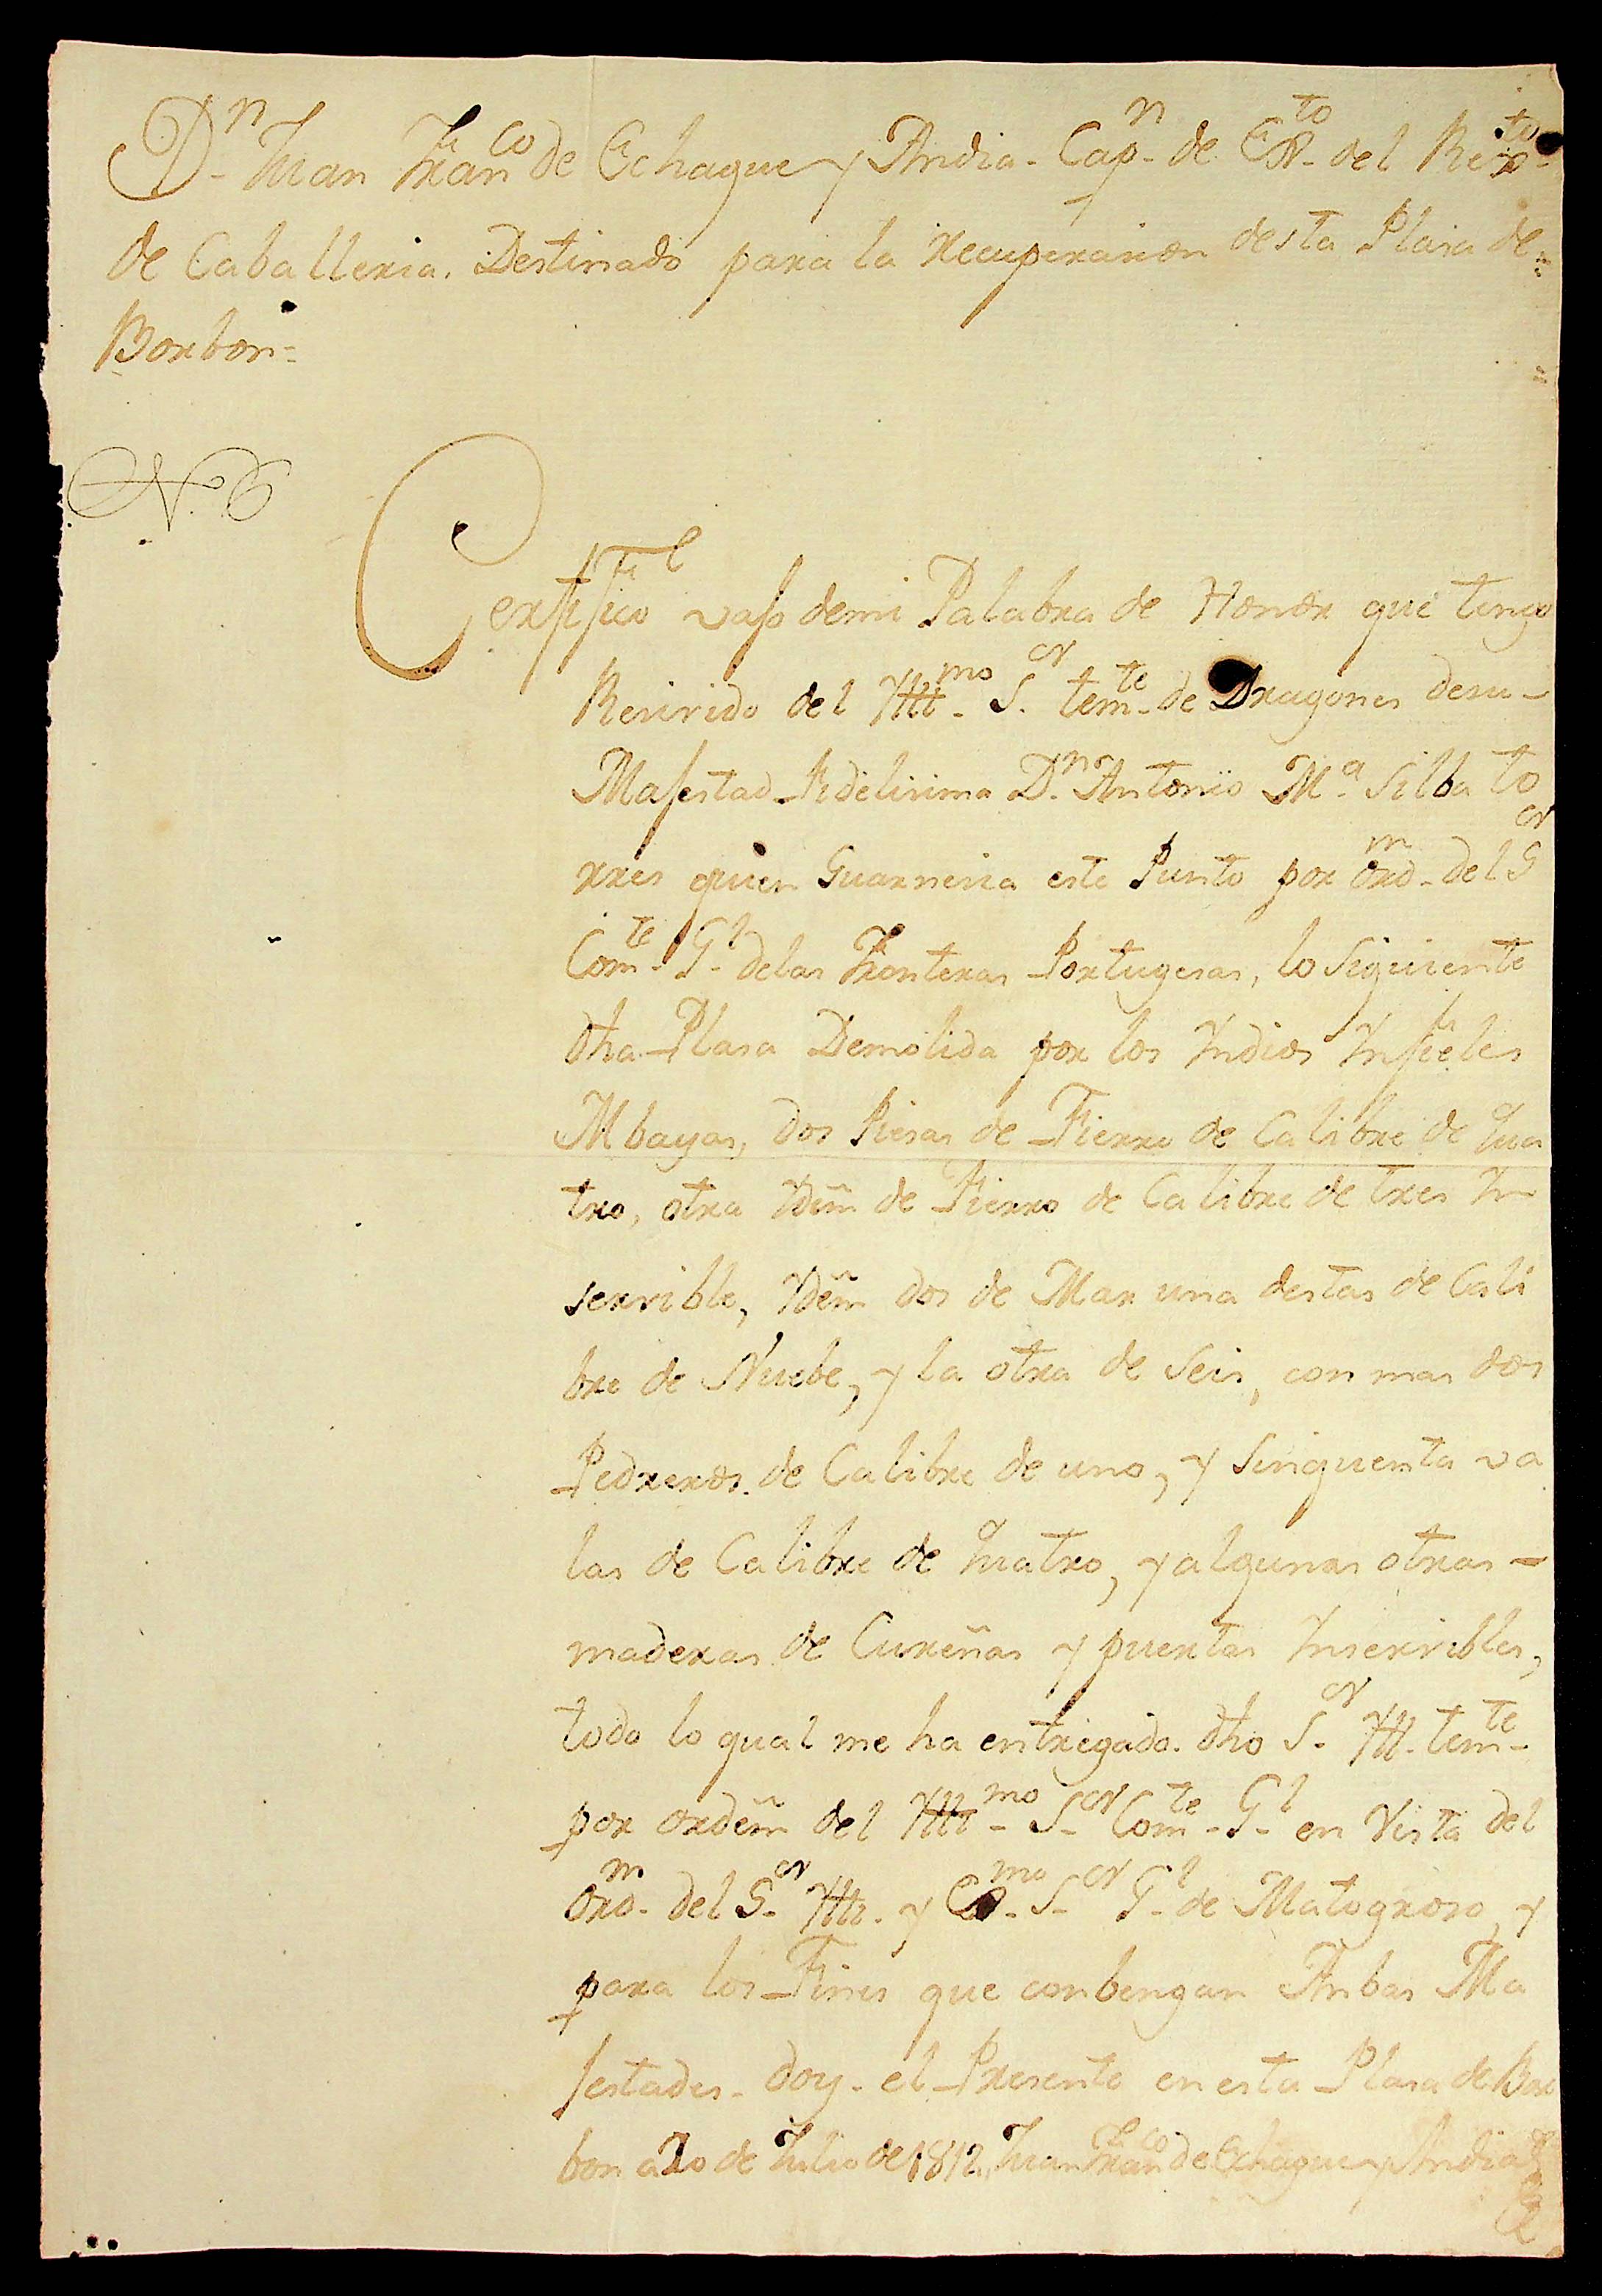 Dn Juan Franco de Echague y Andia Capn de Exto del Regto
de Caballeria. Destinado para la Recuperasion desta Plasa de
Borbon=
N. 6
Certifico vajo demi Palabra de Honor que tengo
Resivido del Illmo Sor tente de Dragones desu
Majestad Fidelisima Dn Antonio Ma Silba to
rres quien Guarnesia este Punto por ordn del Sor
Comte Gl delas Fronteras Portugesas, lo Siguiente
dha Plasa Demolida por los Yndios Ynfieles
Mbayas, dos Piesas de Fierro de Calibre de Qua
tro, otra Ydẽm de Fierro de Calibre de tres Yn
servible, Ydẽm dos de Mar una destas de Cali
bre de Nuebe, y la otra de Seis, con mas dos
Pedreros de Calibre de uno, y Sinquenta va
las de Calibre de Quatro, y algunas otras
maderas de Cureñas y puertas Ynservibles,
todo lo qual me ha entregado dho Sor Yll. tente
por ordẽm del Illmo Sor Comte Gl en Vista del
ordn del Sor Yll. y mo Sor Gl de Matogroso, y
para los Fines que conbengan Anbas Ma
jestades doy el Presente en esta Plasa de Bor
bon a 20 de Julio de 1812. Juan Franco de Echague y Andia